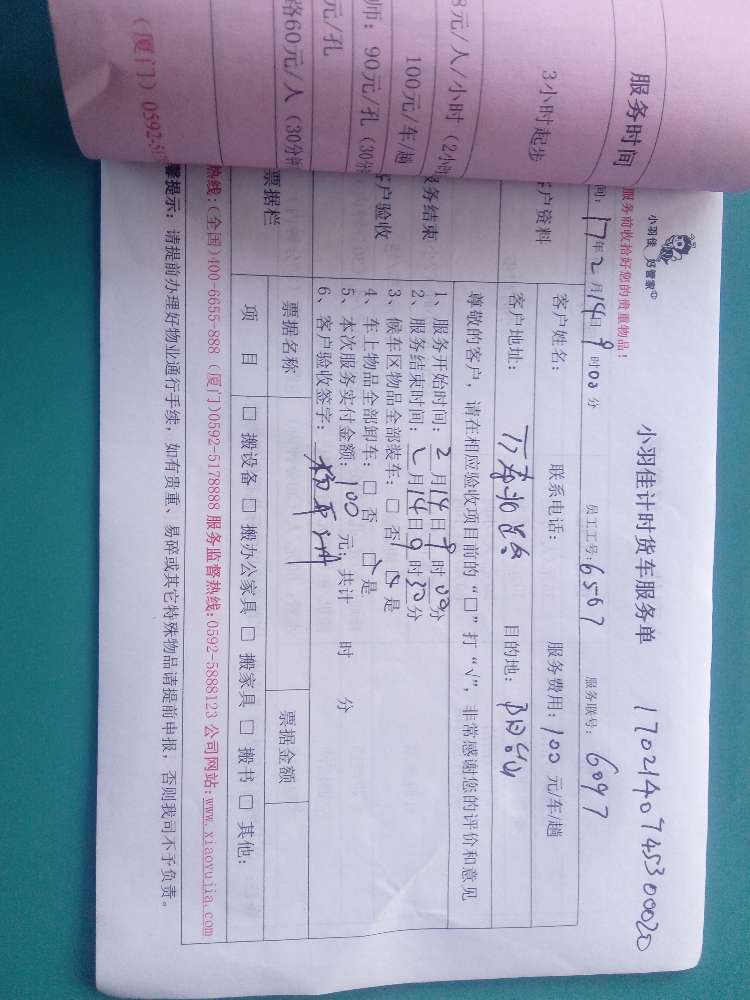 服务时间
3小时起步
8元/人/小时 (2小时
100元/车/趟
师: 90元/孔 (30分
元/孔
路60元/人 (30分钟
(厦门) 0592-51
小羽佳 好管家
服务前收拾好您的贵重物品!
小羽佳计时货车服务单
17021407453 00020
间: 17年2月14日9时00分
员工工号: 6567
服务联号: 6097
客户资料
客户姓名:
联系电话:
服务费用: 100元/车/趟
客户地址:
目的地:
尊敬的客户, 请在相应验收项目前的 “□” 打 “√”, 非常感谢您的评价和意见
服务结束
客户验收
1、服务开始时间: 2月14日9时00分
2、服务结束时间: 2月14日9时30分
3、候车区物品全部装车: □ 否 □ 是
4、车上物品全部卸车: □ 否 □ 是
5、本次服务实付金额: 100元; 共计 时 分
6、客户验收签字:
票据栏
票据名称
票据金额
项 目
□ 搬设备 □ 搬办公家具 □ 搬家具 □ 搬书 □ 其他:
热线: (全国)400-6655-888 (厦门)0592-5178888 服务监督热线:0592-5888123 公司网站:www.xiaoyujia.com
馨提示: 请提前办理好物业通行手续, 如有贵重、易碎或其它特殊物品请提前申报, 否则我司不予负责。